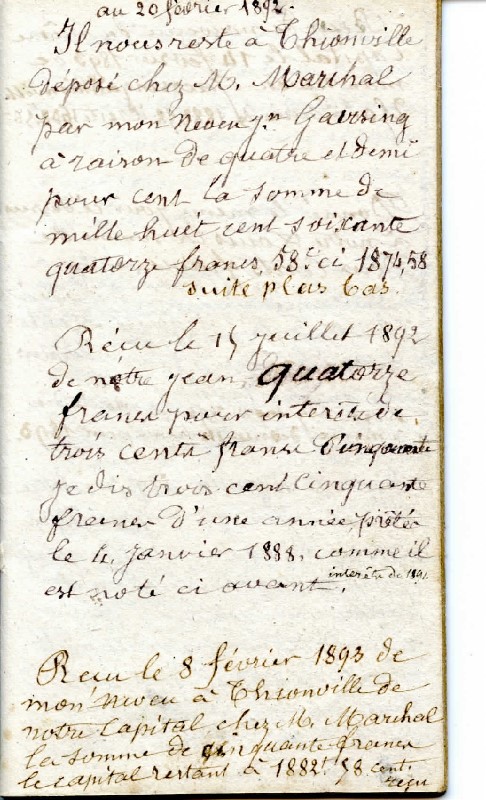 au 20 février 1892.
Il nous reste à Thionville
déposé chez M. Marchal
par mon neveu jn Gaersing
à raison de quatre et demi
pour cent la somme de
mille huit cent soixante
quatorze francs, 58c. ci 1874,58
suite plus bas.
Reçu le 15 juillet 1892
de notre jean, quatorze
francs pour interêts de
trois cents francs Cinquante
je dis trois cent Cinquante
francs d'une année, prêté
le 4 Janvier 1888, comme il
est noté ci avant. interêts de 1891
Reçu le 8 février 1893 de
mon neveu à Thionville de
notre Capital chez M. Marchal
la somme de cinquante francs
le capital restant à 1882f 58 cent.
reçu